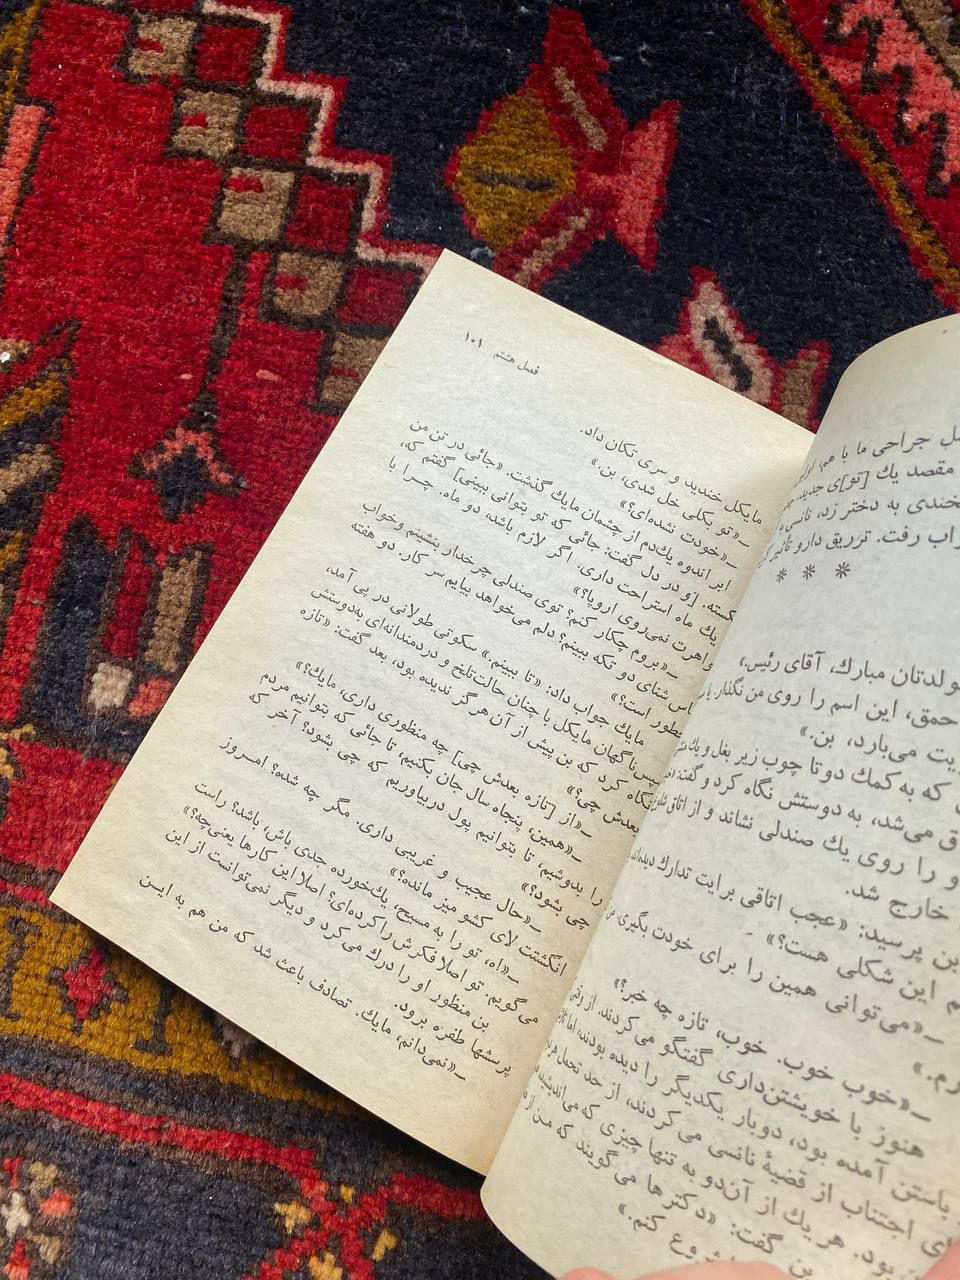 فصل هشتم ۱۰۱
مایکل خندید و سری تکان داد.
ـ«تو بکلی خل شدی، بن.»
ـ«خودت نشده‌ای؟»
ابر اندوه یك‌دم از چشمان مایك گذشت. «جائی در تن من
شکسته. [و در دل گفت: جائی که تو نتوانی ببینی] گفتم که،
یك ماه استراحت داری. اگر لازم باشد، دو ماه. چرا با
خواهرت نمی‌روی اروپا؟»
ـ«بروم چکار کنم؟ توی صندلی چرخدار بنشینم و خواب
لباس شنای دو تکه ببینم؟ دلم می‌خواهد بیایم سر کار. دو هفته
چطور است؟»
مایك جواب داد: «تا ببینم.» سکوتی طولانی در پی آمد،
سپس ناگهان مایکل با چنان حالت تلخ و دردمندانه‌ای به‌دوستش
نگاه کرد که بن پیش از آن هرگز ندیده بود، بعد گفت: «تازه
بعدش چی؟»
ـ«از [تازه بعدش چی] چه منظوری داری، مایك؟»
ـ«همین، پنجاه سال جان بکنیم، تا جائی که بتوانیم مردم
را بدوشیم، تا بتوانیم پول دربیاوریم که چی بشود؟ آخر که
چی بشود؟»
ـ«حال عجیب و غریبی داری. مگر چه شده؟ امروز
انگشتت لای کشو میز مانده؟»
ـ«اه، تو را به مسیح، یك‌خورده جدی باش، باشد؟ راست
می‌گویم. تو اصلا فکرش را کرده‌ای؟ اصلا این کارها یعنی‌چه؟»
بن منظور او را درك می‌کرد و دیگر نمی‌توانست از این
پرسشها طفره برود.
ـ«نمی‌دانم، مایك. تصادف باعث شد که من هم به این
جراحی ما با هم،
مقصد یك [تو]ی جدید
به دختر زد،
رفت. تزریق دارو
* * *
تولدتان مبارك، آقای رئیس.»
احمق، این اسم را روی من نگذار.
می‌بارد، بن.»
که به کمك دوتا چوب زیر بغل و یك
می‌شد، به دوستش نگاه کرد و گفت:
را روی یك صندلی نشاند و از اتاق
خارج شد.
بن پرسید: «عجب اتاقی برایت تدارك
این شکلی هست؟»
ـ«می‌توانی همین را برای خودت بگیری.
ـ«خوب خوب. خوب، تازه چه خبر؟»
هنوز با خویشتن‌داری گفتگو می‌کردند. از وقتی
باستن آمده بود، دوبار یکدیگر را دیده بودند، اما
اجتناب از قضیهٔ نانسی می‌کردند، از حد تحمل
بود. هر یك از آن‌دو به تنها چیزی که می‌اندیشید
بن گفت: «دکترها می گویند که من
شروع کنم.»